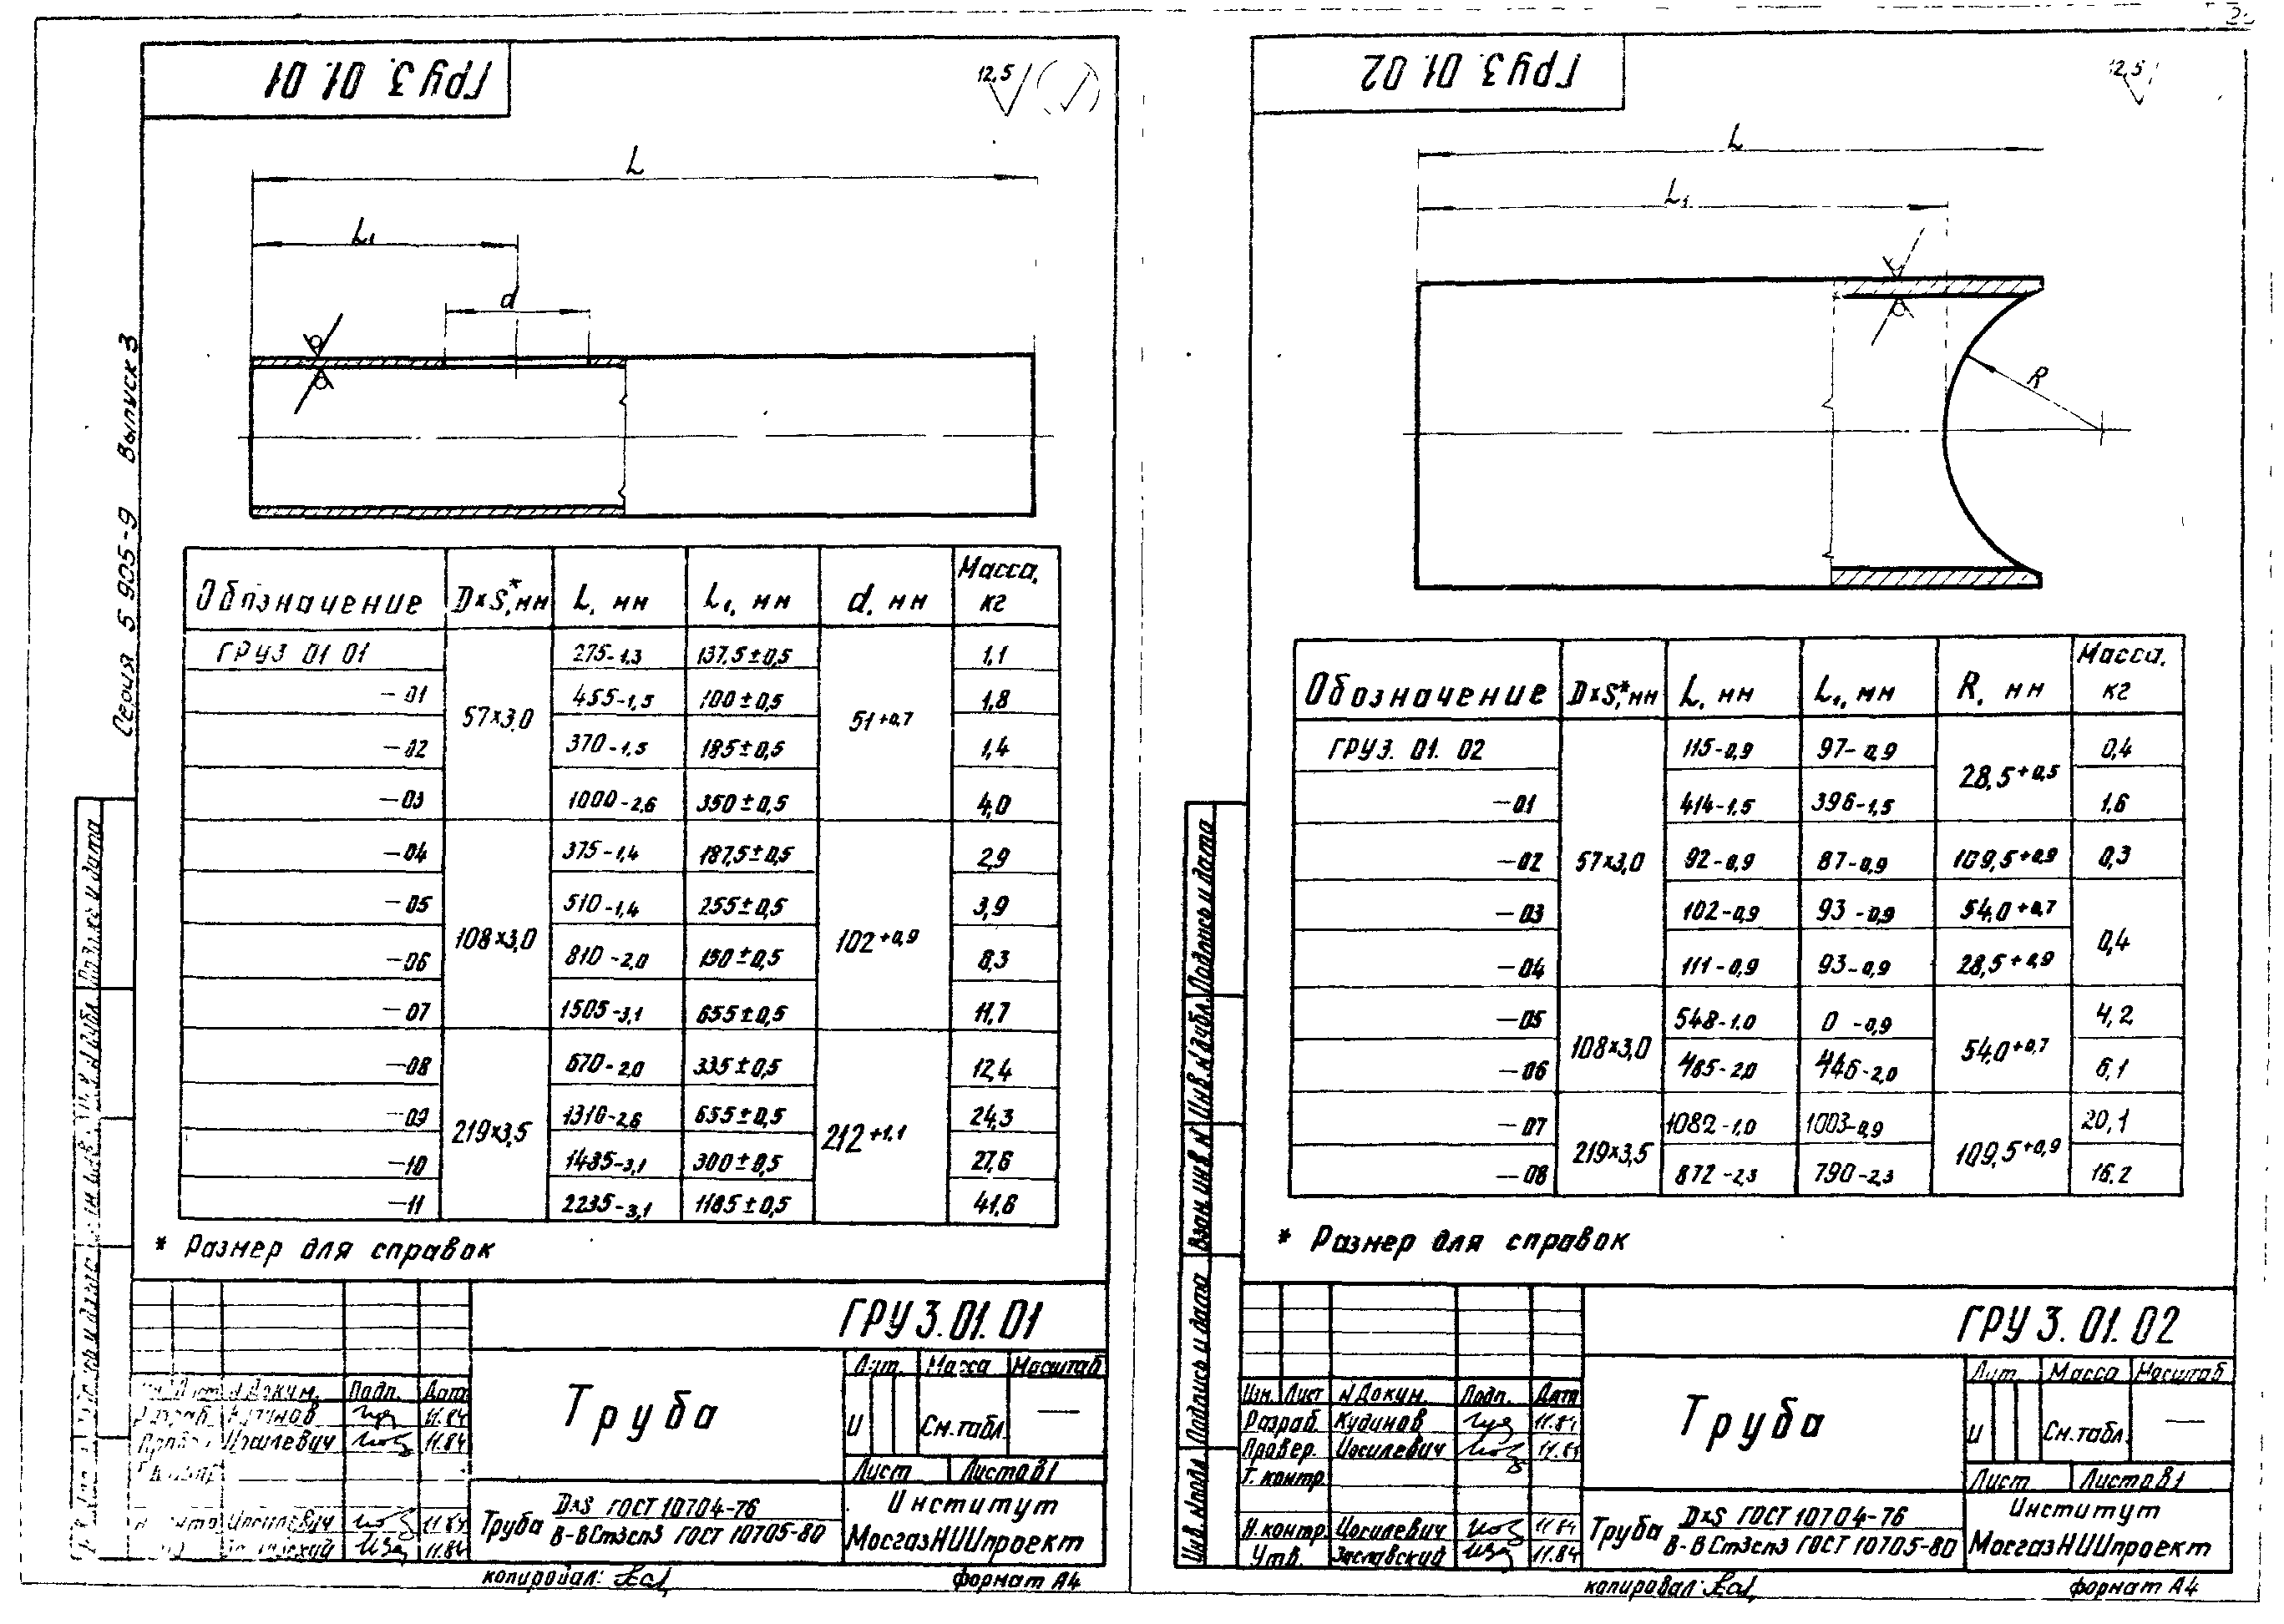 ГРУ 3. 01. 01
12,5
L
L₁
d
Серия 5 905-9 Выпуск 3
Обозначение D×S,* мм L, мм L₁, мм d, мм Масса, кг
ГРУ3 01 01 57×3,0 275-1,3 137,5±0,5 51+0,7 1,1
-01 455-1,5 100±0,5 1,8
-02 370-1,5 185±0,5 1,4
-03 1000-2,6 350±0,5 4,0
-04 108×3,0 375-1,4 187,5±0,5 102+0,9 2,9
-05 510-1,4 255±0,5 3,9
-06 810-2,0 150±0,5 8,3
-07 1505-3,1 655±0,5 11,7
-08 219×3,5 670-2,0 335±0,5 212+1,1 12,4
-09 1310-2,6 655±0,5 24,3
-10 1485-3,1 300±0,5 27,6
-11 2235-3,1 1185±0,5 41,6
* Размер для справок
ГРУ 3. 01. 01
Труба
Лит. Масса Масштаб
И См. табл. —
Лист Листов 1
№ Докум. Подп. Дата
Кудинов 11.84
Иосилевич 11.84
Иосилевич 11.84
11.84
Труба D×S ГОСТ 10704-76
В-В Ст3сп3 ГОСТ 10705-80
Институт
МосгазНИИпроект
копировал:
формат А4
ГРУ 3. 01. 02
12,5
L
L₁
R
Обозначение D×S,* мм L, мм L₁, мм R, мм Масса, кг
ГРУ 3. 01. 02 57×3,0 115-0,9 97-0,9 28,5+0,5 0,4
-01 414-1,5 396-1,5 1,6
-02 92-0,9 87-0,9 109,5+0,9 0,3
-03 102-0,9 93-0,9 54,0+0,7 0,4
-04 111-0,9 93-0,9 28,5+0,9
-05 108×3,0 548-1,0 0-0,9 54,0+0,7 4,2
-06 485-2,0 446-2,0 6,1
-07 219×3,5 1082-1,0 1003-0,9 109,5+0,9 20,1
-08 872-2,3 790-2,3 16,2
* Размер для справок
Инв. № подл. Подпись и дата Взам. инв. № Инв. № дубл. Подпись и дата
ГРУ 3. 01. 02
Труба
Лит. Масса Масштаб
И См. табл. —
Лист Листов 1
Изм. Лист № Докум. Подп. Дата
Разраб. Кудинов 11.84
Провер. Иосилевич 11.84
Т. контр.
Н. контр. Иосилевич 11.84
Утв. Заславский 11.84
Труба D×S ГОСТ 10704-76
В-В Ст3сп3 ГОСТ 10705-80
Институт
МосгазНИИпроект
копировал:
формат А4